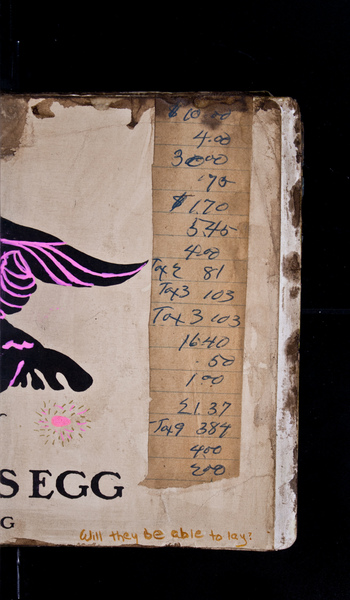 $10.00
4.00
30.00
.75
$1.70
5.45
4.00
Tax 2 81
Tax 3 103
Tax 3 103
16.40
.50
1.00
21.37
Tax 9 384
4.00
2.00
S EGG
G
Will they be able to lay?